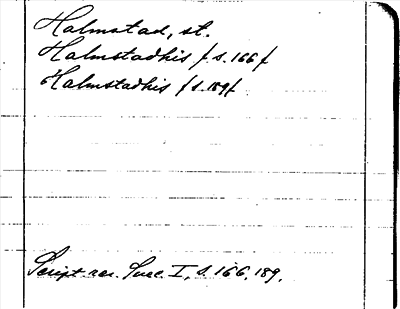 Halmstad, st.
Halmstadhis /s. 166/
Halmstadhis /s. 189/
Script. rer. Svec. I, s. 166, 189.